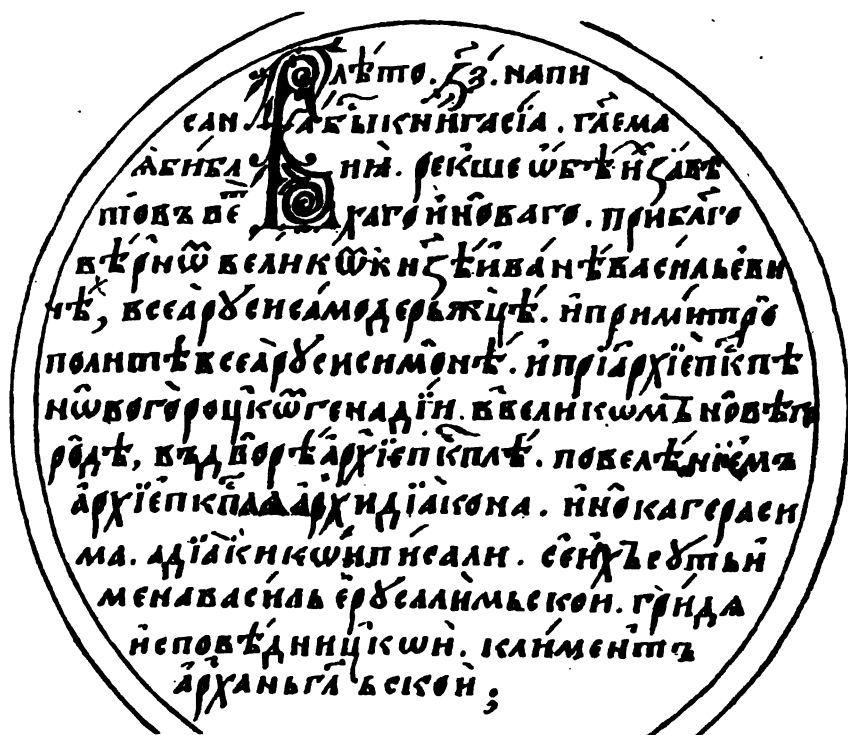 В лѣто ҂ꙁ҃з҃ напи
сана бы҇ книга сїа. гл҃ема
ѧ библ иѩ. рекше ѡбѣиⷯ завѣ
тѡвъ ве тхаго и новаго. при бл҃го
вѣрнѡⷨ великѡⷨ кн҃зѣ иванѣ васильеви
чѣⷯ, всеа рꙋси самодерьжцѣ. и при митро
политѣ всеа рꙋси симонѣ. и при архїепк҇пѣ
нѡвогороцкѡⷨ генадїи. в великѡмъ новѣго
родѣ, въ дворѣ архїепк҇плѣ. повелѣнїемъ
архїепк҇пля архидїакона. инока гераси
ма. а дїаки кѡи писали. се иⷯ сꙋть и
мена василь ерꙋсалимьскои. гридѧ
исповѣдницкѡи. климентъ
арханьгл҃ьскои;